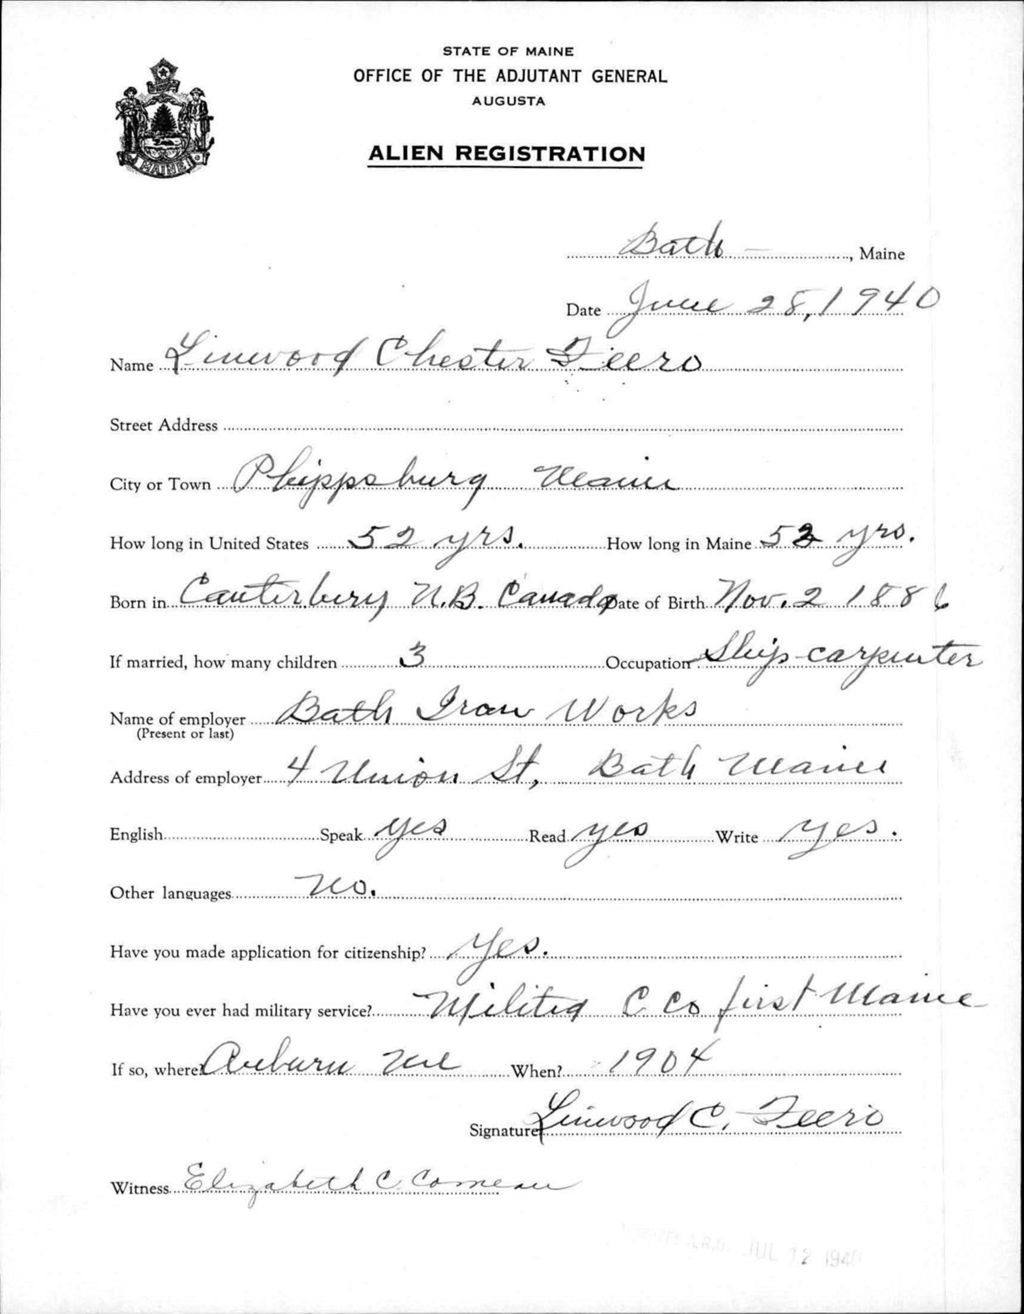 STATE OF MAINE
OFFICE OF THE ADJUTANT GENERAL
AUGUSTA
ALIEN REGISTRATION
MAINE
Bath, Maine
Date June 28, 1940
Name Linwood Chester Feero
Street Address
City or Town Phippsburg Maine
How long in United States 52 yrs. How long in Maine 52 yrs.
Born in Canterbury N.B. Canada Date of Birth Nov. 2 1886
If married, how many children 3 Occupation Ship-carpenter
Name of employer Bath Iron Works
(Present or last)
Address of employer 4 Union St, Bath Maine
English Speak yes Read yes Write yes.
Other languages No.
Have you made application for citizenship? Yes.
Have you ever had military service? Militia C Co first Maine
If so, where? Auburn Me When? 1904
Signature Linwood C. Feero
Witness Elizabeth C Comeau
A.G.O. JUL 12 1940